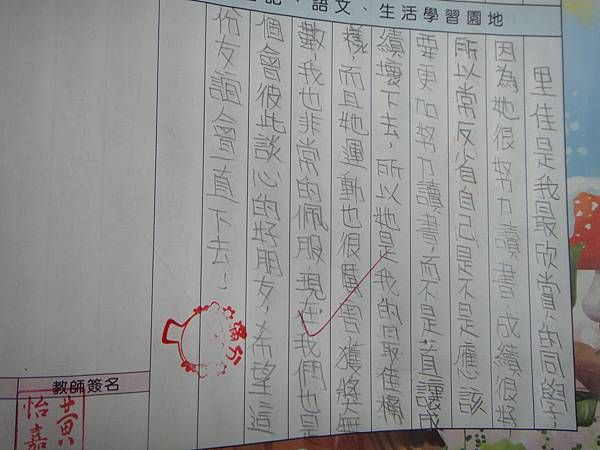 語文、生活學習園地
里佳是我最欣賞的同學,
因為她很努力讀書,成績很好,
所以常反省自己是不是應該
要更加努力讀書,而不是一直讓成
績壞下去,所以她是我的最佳榜
樣,而且她運動也很厲害,獲獎無
數,我也非常的佩服,現在我們也是
個會彼此談心的好朋友,希望這
份友誼會一直下去!
教師簽名
黃
怡嘉